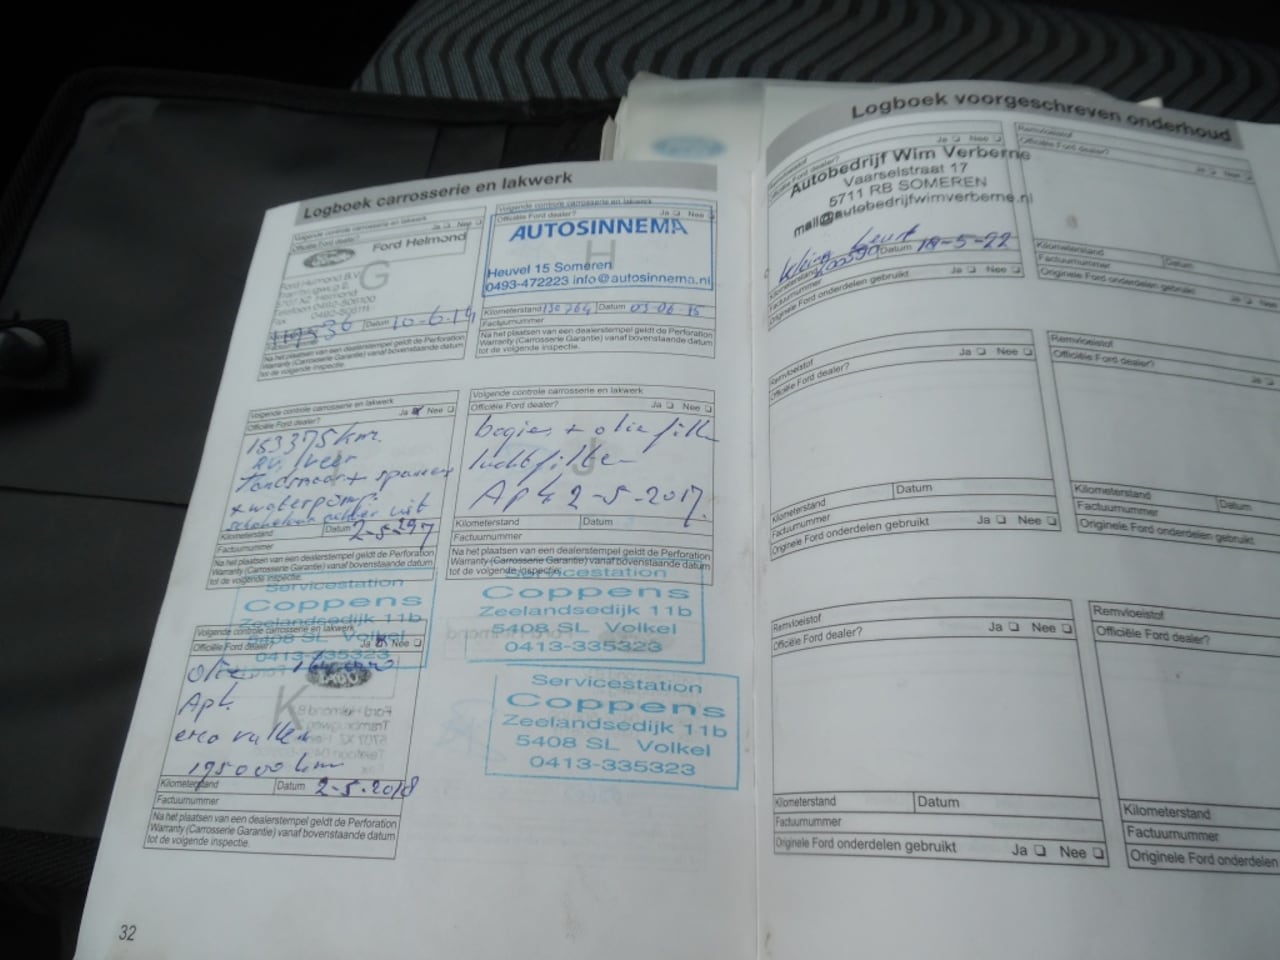 Logboek carrosserie en lakwerk
Volgende controle carrosserie en lakwerk
Officiële Ford dealer? Ja Nee
Ford Helmond
G
Ford Helmond B.V.
5707 XZ Helmond
Datum 10-6-14
Na het plaatsen van een dealerstempel geldt de Perforation
Warranty (Carrosserie Garantie) vanaf bovenstaande datum
tot de volgende inspectie.
Volgende controle carrosserie en lakwerk
Officiële Ford dealer? Ja Nee
AUTOSINNEMA
H
Heuvel 15 Someren
0493-472223 info@autosinnema.nl
Kilometerstand 130764 Datum 03-06-15
Factuurnummer
Na het plaatsen van een dealerstempel geldt de Perforation
Warranty (Carrosserie Garantie) vanaf bovenstaande datum
tot de volgende inspectie.
Volgende controle carrosserie en lakwerk
Officiële Ford dealer? Ja Nee
153375 km.
+ waterpomp
Kilometerstand Datum
Factuurnummer
Na het plaatsen van een dealerstempel geldt de Perforation
Warranty (Carrosserie Garantie) vanaf bovenstaande datum
tot de volgende inspectie.
Servicestation
Coppens
Zeelandsedijk 11b
5408 SL Volkel
0413-335323
Volgende controle carrosserie en lakwerk
Officiële Ford dealer? Ja Nee
J
bogies + olie filter
luchtfilter
Apk 2-5-2017.
Kilometerstand Datum
Factuurnummer
Na het plaatsen van een dealerstempel geldt de Perforation
Warranty (Carrosserie Garantie) vanaf bovenstaande datum
tot de volgende inspectie.
Servicestation
Coppens
Zeelandsedijk 11b
5408 SL Volkel
0413-335323
Volgende controle carrosserie en lakwerk
Officiële Ford dealer? Ja Nee
Olie
Apk
K
195000 km
Kilometerstand Datum 2-5-2018
Factuurnummer
Na het plaatsen van een dealerstempel geldt de Perforation
Warranty (Carrosserie Garantie) vanaf bovenstaande datum
tot de volgende inspectie.
Servicestation
Coppens
Zeelandsedijk 11b
5408 SL Volkel
0413-335323
32
Logboek voorgeschreven onderhoud
Remvloeistof Ja Nee
Officiële Ford dealer?
Autobedrijf Wim Verberne
Vaarselstraat 17
5711 RB SOMEREN
mail@autobedrijfwimverberne.nl
kleine beurt
Kilometerstand 200590 Datum 18-5-22
Factuurnummer
Originele Ford onderdelen gebruikt Ja Nee
Remvloeistof
Officiële Ford dealer? Ja Nee
Kilometerstand
Factuurnummer Datum
Originele Ford onderdelen gebruikt Ja Nee
Remvloeistof Ja Nee
Officiële Ford dealer?
Kilometerstand Datum
Factuurnummer
Originele Ford onderdelen gebruikt Ja Nee
Remvloeistof
Officiële Ford dealer? Ja
Kilometerstand Datum
Factuurnummer
Originele Ford onderdelen gebruikt
Remvloeistof Ja Nee
Officiële Ford dealer?
Kilometerstand Datum
Factuurnummer
Originele Ford onderdelen gebruikt Ja Nee
Remvloeistof
Officiële Ford dealer?
Kilometerstand
Factuurnummer
Originele Ford onderdelen